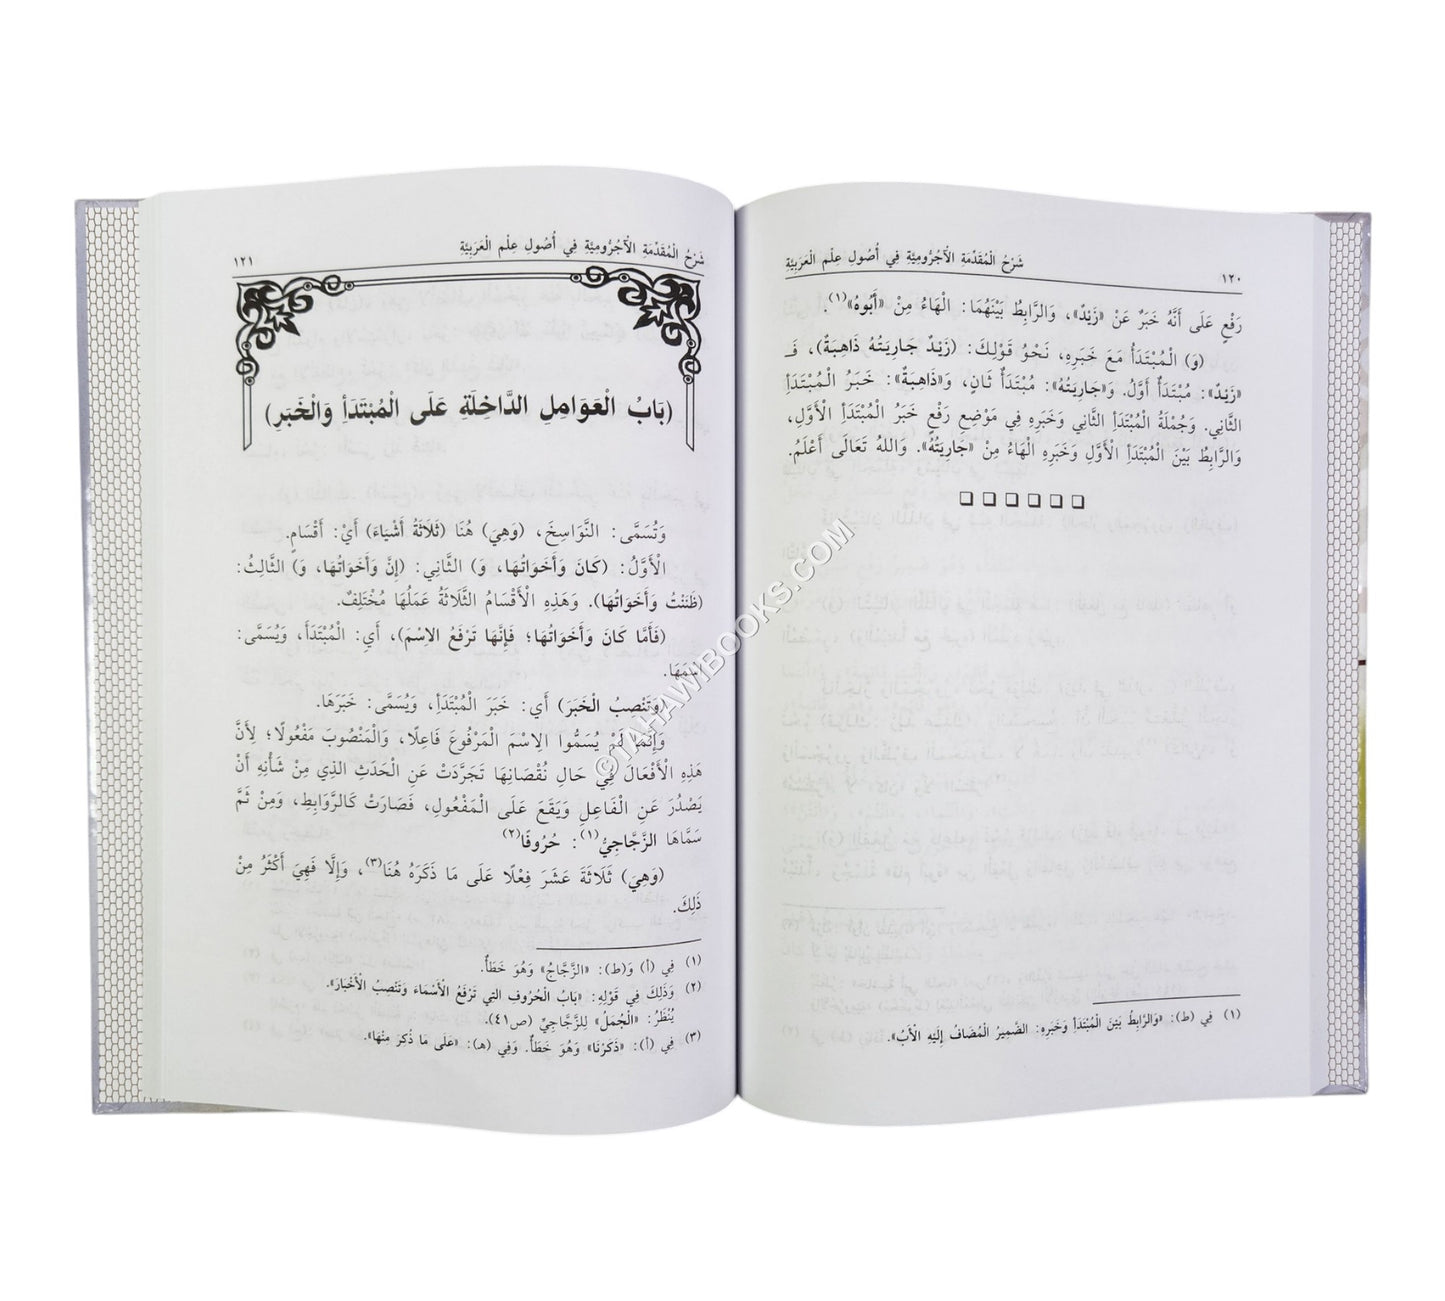 شَرْحُ الْمُقَدِّمَةِ الْآجُرُّومِيَّةِ فِي أُصُولِ عِلْمِ الْعَرَبِيَّةِ
١٢٠
رَفْعٍ عَلَى أَنَّهُ خَبَرٌ عَنْ «زَيْدٌ»، وَالرَّابِطُ بَيْنَهُمَا: الْهَاءُ مِنْ «أَبُوهُ»(١).
(وَ) الْمُبْتَدَأُ مَعَ خَبَرِهِ، نَحْوُ قَوْلِكَ: (زَيْدٌ جَارِيَتُهُ ذَاهِبَةٌ)، فَـ
«زَيْدٌ»: مُبْتَدَأٌ أَوَّلُ. وَ«جَارِيَتُهُ»: مُبْتَدَأٌ ثَانٍ، وَ«ذَاهِبَةٌ»: خَبَرُ الْمُبْتَدَأِ
الثَّانِي. وَجُمْلَةُ الْمُبْتَدَأِ الثَّانِي وَخَبَرِهِ فِي مَوْضِعِ رَفْعٍ خَبَرُ الْمُبْتَدَأِ الْأَوَّلِ،
وَالرَّابِطُ بَيْنَ الْمُبْتَدَأِ الْأَوَّلِ وَخَبَرِهِ الْهَاءُ مِنْ «جَارِيَتُهُ». وَاللهُ تَعَالَى أَعْلَمُ.
(١) فِي (ط): «وَالرَّابِطُ بَيْنَ الْمُبْتَدَأِ وَخَبَرِهِ: الضَّمِيرُ الْمُضَافُ إِلَيْهِ الْأَبُ».
شَرْحُ الْمُقَدِّمَةِ الْآجُرُّومِيَّةِ فِي أُصُولِ عِلْمِ الْعَرَبِيَّةِ
١٢١
(بَابُ الْعَوَامِلِ الدَّاخِلَةِ عَلَى الْمُبْتَدَأِ وَالْخَبَرِ)
وَتُسَمَّى: النَّوَاسِخَ، (وَهِيَ) هُنَا (ثَلَاثَةُ أَشْيَاءَ) أَيْ: أَقْسَامٍ.
الْأَوَّلُ: (كَانَ وَأَخَوَاتُهَا، وَ) الثَّانِي: (إِنَّ وَأَخَوَاتُهَا، وَ) الثَّالِثُ:
(ظَنَنْتُ وَأَخَوَاتُهَا). وَهَذِهِ الْأَقْسَامُ الثَّلَاثَةُ عَمَلُهَا مُخْتَلِفٌ.
(فَأَمَّا كَانَ وَأَخَوَاتُهَا؛ فَإِنَّهَا تَرْفَعُ الِاسْمَ)، أَيِ: الْمُبْتَدَأَ، وَيُسَمَّى:
اسْمَهَا.
(وَتَنْصِبُ الْخَبَرَ) أَيْ: خَبَرَ الْمُبْتَدَأِ، وَيُسَمَّى: خَبَرَهَا.
وَإِنَّمَا لَمْ يُسَمُّوا الِاسْمَ الْمَرْفُوعَ فَاعِلًا، وَالْمَنْصُوبَ مَفْعُولًا؛ لِأَنَّ
هَذِهِ الْأَفْعَالَ فِي حَالِ نُقْصَانِهَا تَجَرَّدَتْ عَنِ الْحَدَثِ الذِي مِنْ شَأْنِهِ أَنْ
يَصْدُرَ عَنِ الْفَاعِلِ وَيَقَعَ عَلَى الْمَفْعُولِ، فَصَارَتْ كَالرَّوَابِطِ، وَمِنْ ثَمَّ
سَمَّاهَا الزَّجَّاجِيُّ(١): حُرُوفًا(٢)
(وَهِيَ) ثَلَاثَةَ عَشَرَ فِعْلًا عَلَى مَا ذَكَرَهُ هُنَا(٣)، وَإِلَّا فَهِيَ أَكْثَرُ مِنْ
ذَلِكَ.
(١) فِي (أ) وَ(ط): «الزَّجَّاجُ» وَهُوَ خَطَأٌ.
(٢) وَذَلِكَ فِي قَوْلِهِ: «بَابُ الْحُرُوفِ التِي تَرْفَعُ الْأَسْمَاءَ وَتَنْصِبُ الْأَخْبَارَ».
يُنْظَرُ: «الْجُمَلُ» لِلزَّجَّاجِيِّ (ص٤١).
(٣) فِي (أ): «ذَكَرْنَا» وَهُوَ خَطَأٌ. وَفِي (هـ): «عَلَى مَا ذُكِرَ مِنْهَا».
©TAHAWIBOOKS.COM